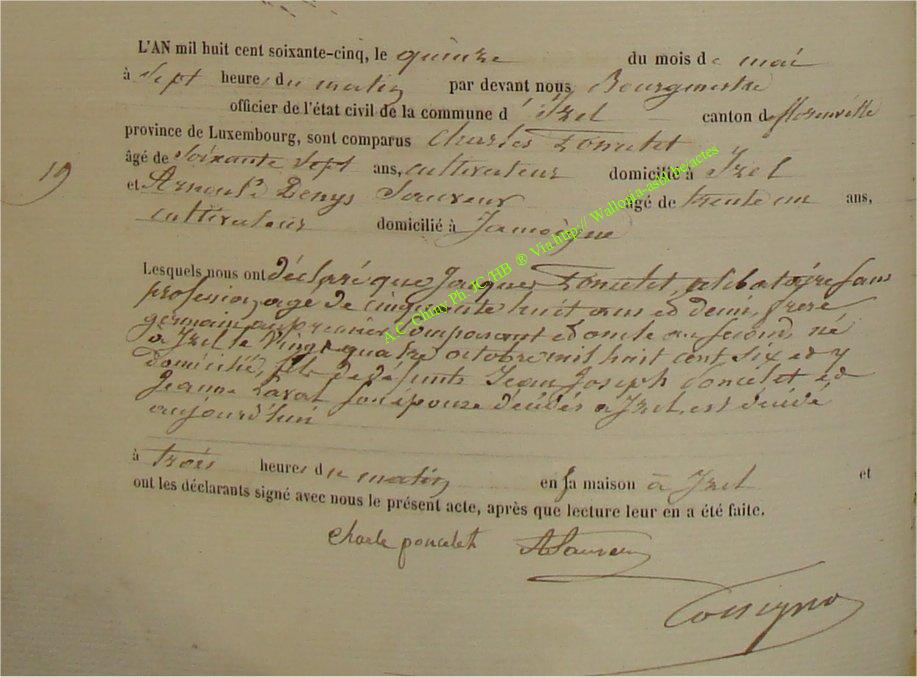 L'AN mil huit cent soixante-cinq, le quinze du mois de mai
à Sept heures du matin par devant nous Bourgmestre
officier de l'état civil de la commune d' Izel canton de florenville
province de Luxembourg, sont comparus Charles Poncelet
19
âgé de Soixante Sept ans, cultivateur domicilié à Izel
et Arnould Denys Sauveur âgé de trente un ans,
cultivateur domicilié à Jamoigne
Lesquels nous ont déclaré que Jacques Poncelet, célibataire sans
profession, agé de cinquante huit ans et demi, frere
germain au premier Comparant et oncle au second, né
a Izel le Vingt quatre octobre mil huit cent six et y
Domicilié, fils de défunts Jean Joseph Poncelet et
Jeanne son épouse décédés a Izel, est décédé
aujourd'hui
à trois heures du matin en sa maison à Izel et
ont les déclarants signé avec nous le présent acte, après que lecture leur en a été faite.
Charle poncelet ASauveur
A.C. Chiny Ph. JG/HB ® Via http:// Wallonia-asbl.be/actes